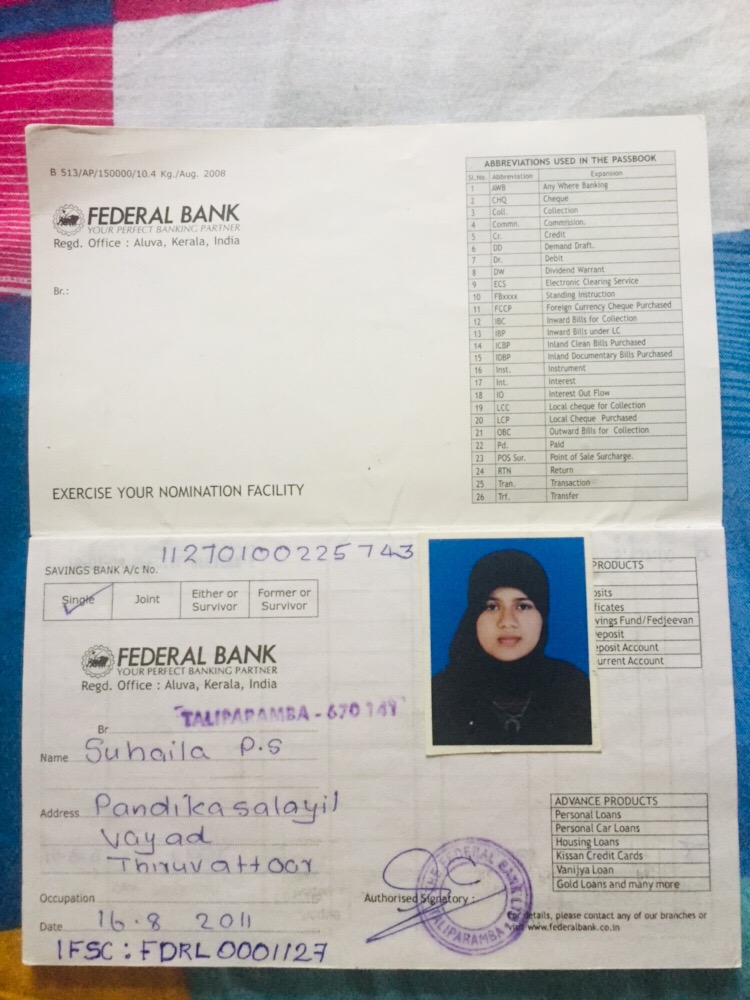 B 513/AP/150000/10.4 Kg./Aug. 2008
FEDERAL BANK
YOUR PERFECT BANKING PARTNER
Regd. Office : Aluva, Kerala, India
Br.:
EXERCISE YOUR NOMINATION FACILITY
ABBREVIATIONS USED IN THE PASSBOOK
Sl.No. Abbreviation Expansion
1 AWB Any Where Banking
2 CHQ Cheque
3 Coll. Collection
4 Commn. Commission.
5 Cr. Credit
6 DD Demand Draft.
7 Dr. Debit
8 DW Dividend Warrant
9 ECS Electronic Clearing Service
10 FBxxxx Standing Instruction
11 FCCP Foreign Currency Cheque Purchased
12 IBC Inward Bills for Collection
13 IBP Inward Bills under LC
14 ICBP Inland Clean Bills Purchased
15 IDBP Inland Documentary Bills Purchased
16 Inst. Instrument
17 Int. Interest
18 IO Interest Out Flow
19 LCC Local cheque for Collection
20 LCP Local Cheque Purchased
21 OBC Outward Bills for Collection
22 Pd. Paid
23 POS Sur. Point of Sale Surcharge.
24 RTN Return
25 Tran. Transaction
26 Trf. Transfer
11270100225743
SAVINGS BANK A/c No.
Single Joint Either or Survivor Former or Survivor
FEDERAL BANK
YOUR PERFECT BANKING PARTNER
Regd. Office : Aluva, Kerala, India
TALIPARAMBA - 670 141
Br
Name Suhaila P.S
Address Pandikasalayil
Vayad
Thiruvattoor
Occupation
Date 16.8 2011
IFSC : FDRL0001127
Authorised Signatory :
THE FEDERAL BANK LTD
TALIPARAMBA
PRODUCTS
osits
ficates
vings Fund/Fedjeevan
eposit
eposit Account
urrent Account
ADVANCE PRODUCTS
Personal Loans
Personal Car Loans
Housing Loans
Kissan Credit Cards
Vanijya Loan
Gold Loans and many more
For details, please contact any of our branches or
visit www.federalbank.co.in